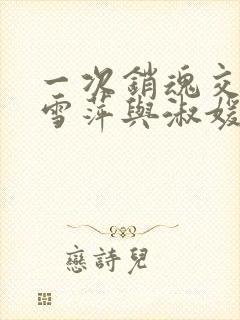 一次銷魂交
雪萍與淑媛
戀詩兒